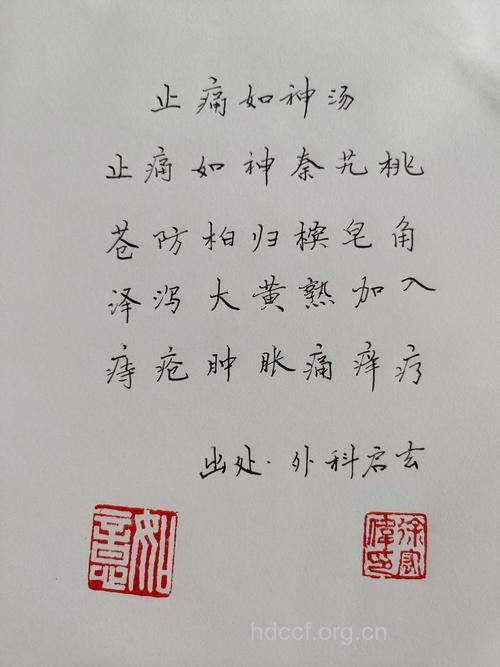 止痛如神汤
止痛如神秦艽桃
苍防柏归槟皂角
泽泻大黄熟加入
痔疮肿胀痛痒疗
出处·外科启玄
如意
hdccf.org.cn